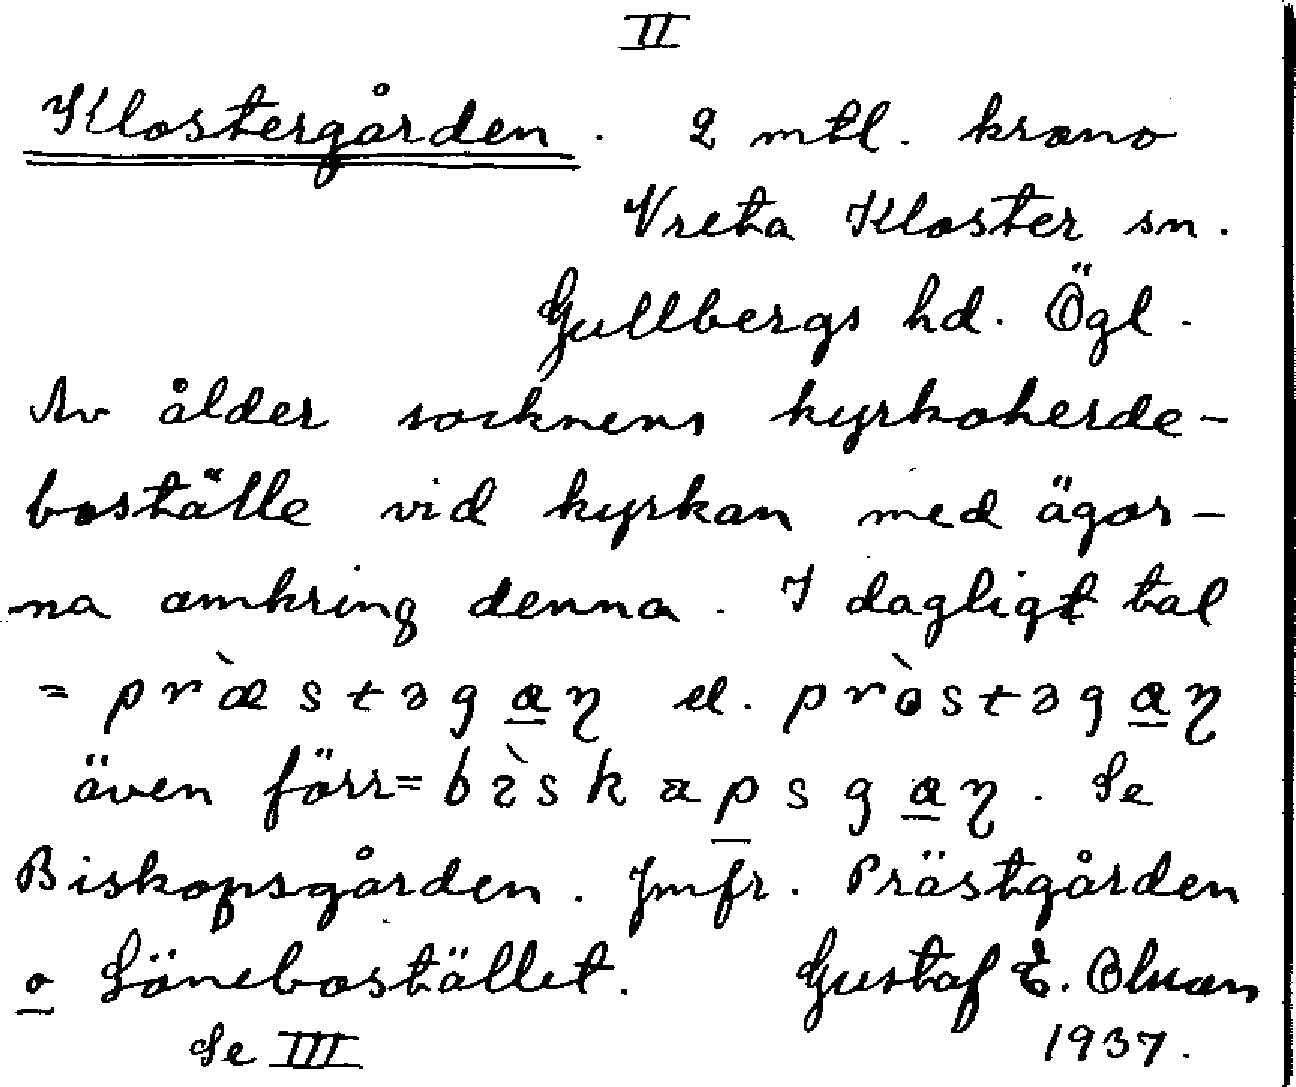 II
Klostergården. 2 mtl. krono
Vreta Kloster sn.
Gullbergs hd. Ögl.
Av ålder socknens kyrkoherde-
boställe vid kyrkan med ägor-
na omkring denna. I dagligt tal
= præ̀stəgaη el. prò̀stəgaη
även förr = bìskapsgaη. Se
Biskopsgården. Jmfr. Prästgården
o Lönebostället. Gustaf E. Olsson
Se III 1937.